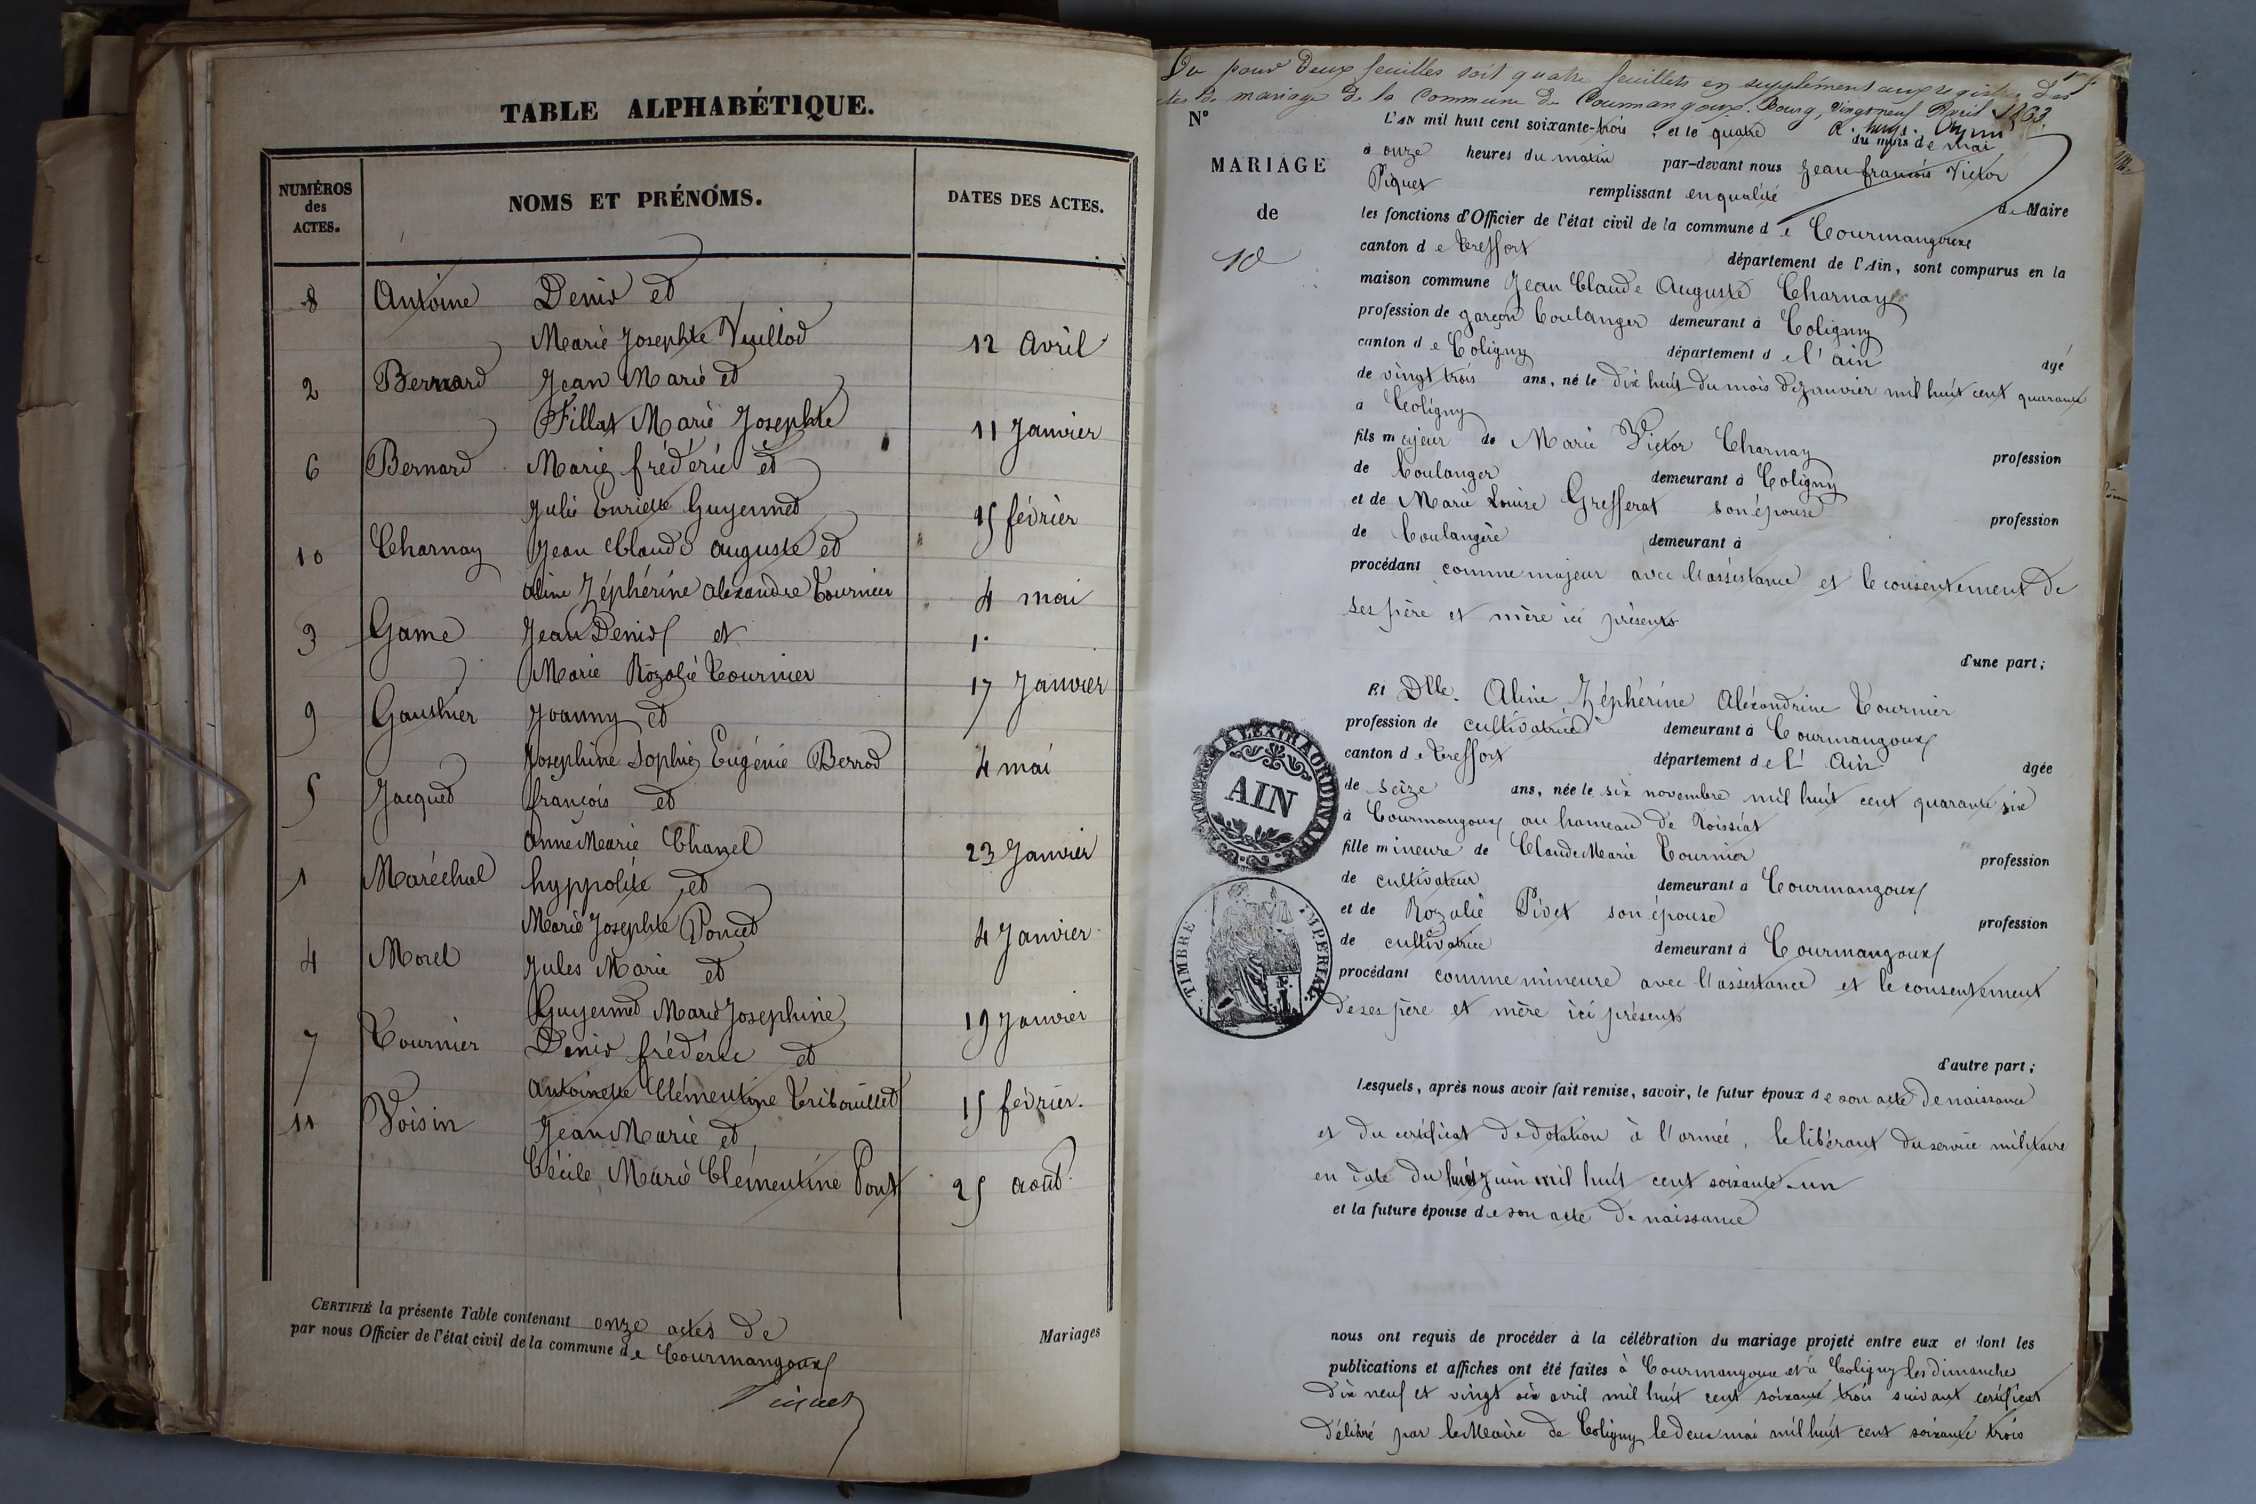 TABLE ALPHABÉTIQUE.
NUMÉROS des ACTES.
NOMS ET PRÉNOMS.
DATES DES ACTES.
8 Antoine Denis et
Marie Josephte Vuillod 12 avril
2 Bernard Jean Marie et
Fillat Marie Josephte 11 Janvier
6 Bernard Marie frédéric et
Julie Enriette Guyennet 15 février
10 Charnay Jean Claude auguste et
aline Zéphérine alexandre Tournier 4 mai
3 Game Jean Denis et
Marie Rozalie Tournier 17 Janvier
9 Gauthier Joanny et
Josephine Sophie Eugénie Berrod 4 mai
5 Jacquet françois et
anne Marie Chanel 23 Janvier
1 Maréchal hyppolite et
Marie Josephte Poncet 4 Janvier
4 Morel Jules Marie et
Guyennet Marie Josephine 19 Janvier
7 Tournier Denis frédéric et
antoinette Clémentine Tribouillet 15 février.
11 Voisin Jean Marie et
Cécile Marie Clémentine Pont 25 août
CERTIFIÉ la présente Table contenant onze actes de Mariages
par nous Officier de l'état civil de la commune de Courmangoux
Piquet
Vu pour deux feuilles soit quatre feuillets en supplément aux registres des
actes de mariage de la Commune de Courmangoux. Bourg, vingt neuf Avril 1863.
N°
MARIAGE
de
10
L'AN mil huit cent soixante-trois, et le quatre du mois de mai
à onze heures du matin par-devant nous Jean françois Victor
Piquet remplissant en qualité de Maire
les fonctions d'Officier de l'état civil de la commune de Courmangoux
canton de Treffort département de l'Ain, sont comparus en la
maison commune Jean Claude Auguste Charnay
profession de garçon boulanger demeurant à Coligny
canton de Coligny département de l'ain âgé
de vingt trois ans, né le dix huit du mois de janvier mil huit cent quarante
à Coligny
fils majeur de Marie Victor Charnay profession
de boulanger demeurant à Coligny
et de Marie Louise Grefferat son épouse profession
de boulangère demeurant à
procédant comme majeur avec l'assistance et le consentement de
ses père et mère ici présents
d'une part;
Et Dlle. Aline Zéphérine Aléxandrine Tournier
profession de cultivatrice demeurant à Courmangoux
canton de Treffort département de l'Ain âgée
de seize ans, née le six novembre mil huit cent quarante six
à Courmangoux au hameau de Roissiat
fille mineure de Claude Marie Tournier profession
de cultivateur demeurant à Courmangoux
et de Rozalie Pivet son épouse profession
de cultivatrice demeurant à Courmangoux
procédant comme mineure avec l'assistance et le consentement
de ses père et mère ici présents
d'autre part;
Lesquels, après nous avoir fait remise, savoir, le futur époux de son acte de naissance
et du certificat de dotation à l'armée, le libérant du service militaire
en date du huit juin mil huit cent soixante-un
et la future épouse de son acte de naissance
nous ont requis de procéder à la célébration du mariage projeté entre eux et dont les
publications et affiches ont été faites à Courmangoux et à Coligny les dimanche
dix neuf et vingt six avril mil huit cent soixante trois suivant certificat
délivré par le Maire de Coligny le deux mai mil huit cent soixante trois
A L'EXTRAORDINAIRE
AIN
TIMBRE IMPERIAL